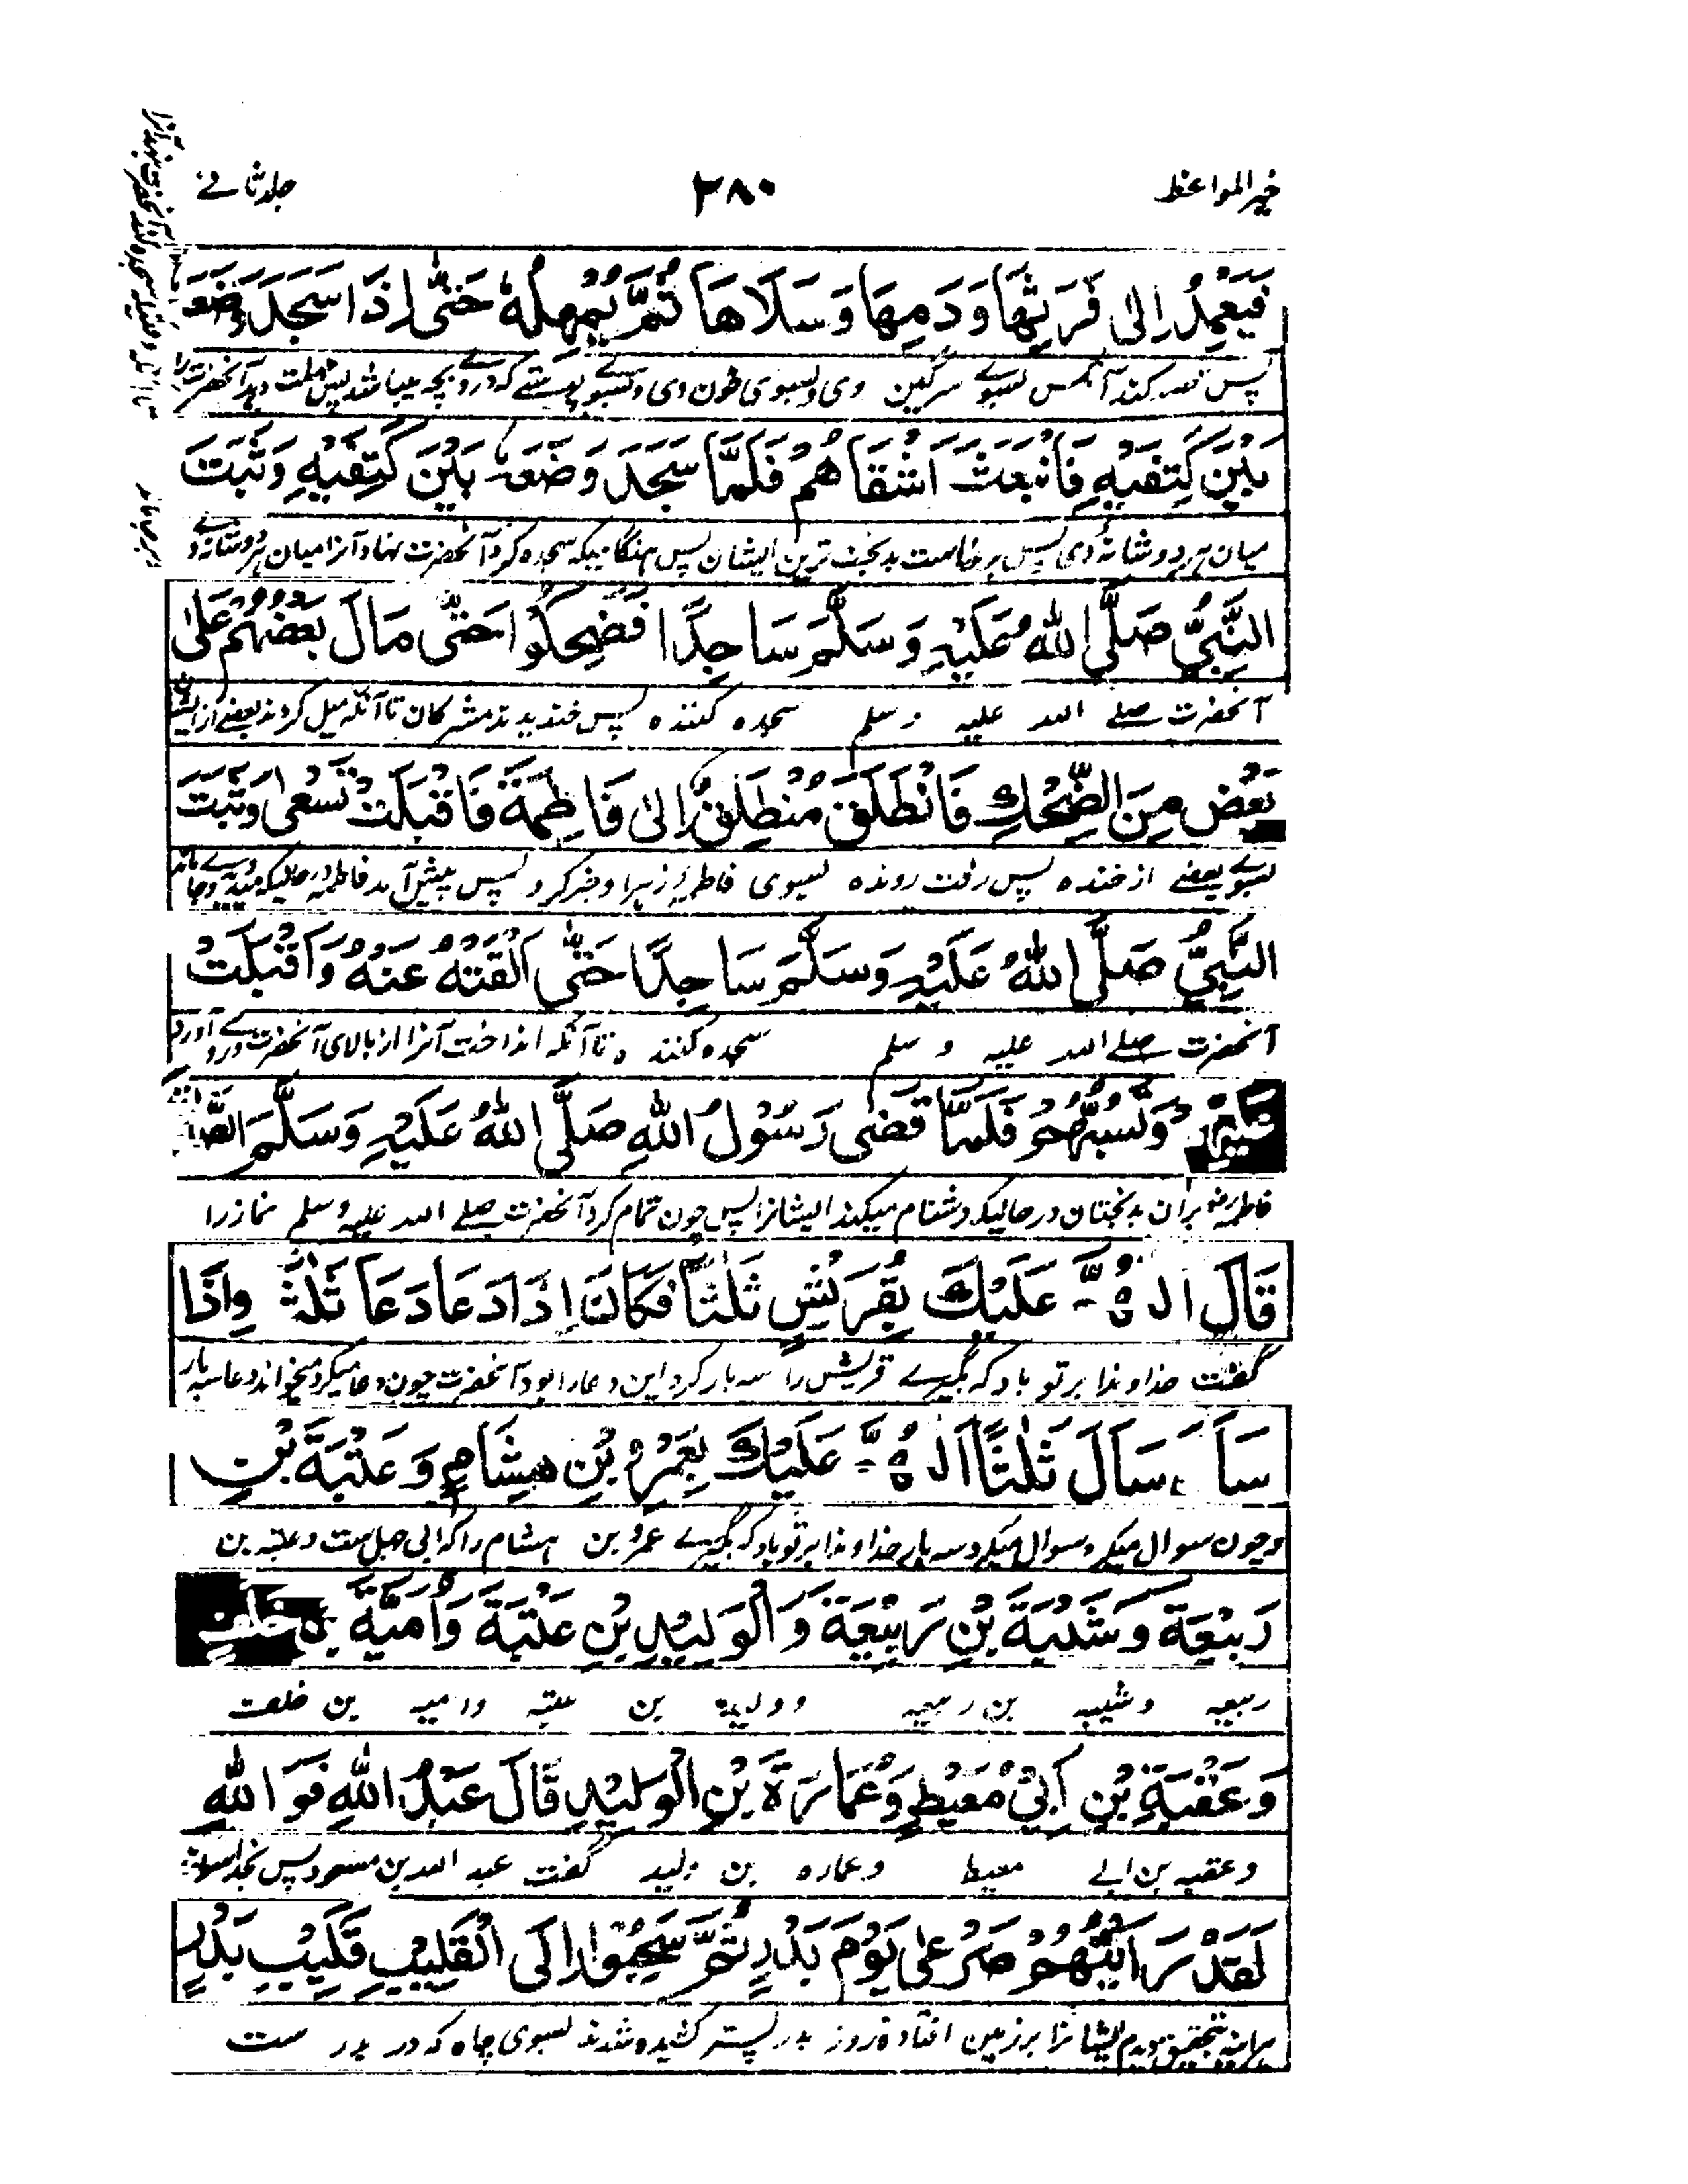 خیر المواعظ ۳۸۰ جلد ثانے
فَیَعْمِدُ اِلٰی فَرَثِهَا وَدَمِهَا وَسَلَاهَا ثُمَّ یُمْهِلُهٗ حَتّٰی اِذَا سَجَدَ وَضَعَهٗ
پس قصد کند آنکس بسوے سرگین وی و بسوی خون وی و بسوے پوستے که درو بچه میباشد پس مهلت دهد آنحضرت را
بَیْنَ کَتِفَیْهِ فَانْبَعَثَ اَشْقَاهُمْ فَلَمَّا سَجَدَ وَضَعَهٗ بَیْنَ کَتِفَیْهِ وَثَبَتَ
میان هر دو شانهٔ وی پس برخاست بدبخت ترین ایشان پس هنگامیکه سجده کرد آنحضرت نهاد آنرا میان هر دو شانه
النَّبِیُّ صَلَّی اللهُ عَلَیْهِ وَسَلَّمَ سَاجِدًا فَضَحِکُوْا حَتّٰی مَالَ بَعْضُهُمْ عَلٰی
آنحضرت صلے الله علیه وسلم سجده کننده پس خندیدند مشرکان تا آنکه میل کردند بعضے از ایشان
بَعْضٍ مِنَ الضِّحْكِ فَانْطَلَقَ مُنْطَلِقٌ اِلٰی فَاطِمَةَ فَاَقْبَلَتْ تَسْعٰی وَثَبَتَ
بسوے بعضے از خنده پس رفت رونده بسوی فاطمهٔ زهرا و خبر کرد پس پیش آمد فاطمه در حالیکه
النَّبِیُّ صَلَّی اللهُ عَلَیْهِ وَسَلَّمَ سَاجِدًا حَتّٰی اَلْقَتْهُ عَنْهُ وَاَقْبَلَتْ
آنحضرت صلے الله علیه و سلم سجده کننده تا آنکه انداخت آنرا از بالای آنحضرت و روے آورد
عَلَیْهِمْ وَتَسُبُّهُمْ فَلَمَّا قَضٰی رَسُوْلُ اللهِ صَلَّی اللهُ عَلَیْهِ وَسَلَّمَ الصَّلٰوةَ
فاطمه بران بدبختان در حالیکه دشنام میکند ایشانرا پس چون تمام کرد آنحضرت صلے الله علیه وسلم نماز را
قَالَ اللّٰهُمَّ عَلَیْكَ بِقُرَیْشٍ ثَلٰثًا فَکَانَ اِذَا دَعَا دَعَا ثَلٰثًا وَاِذَا
گفت خداوندا بر تو باد که بگیرے قریش را سه بار کرد این دعا را و بود آنحضرت چون دعا میکرد میخواند دعا سه بار
سَاَلَ سَاَلَ ثَلٰثًا اَللّٰهُمَّ عَلَیْكَ بِعَمْرِو بْنِ هِشَامٍ وَعُتْبَةَ بْنِ
و چون سوال میکرد سوال میکرد سه بار خداوندا بر تو باد که بگیرے عمرو بن هشام را که ابی جهل ست و عتبه بن
رَبِیْعَةَ وَشَیْبَةَ بْنِ رَبِیْعَةَ وَالْوَلِیْدِ بْنِ عُتْبَةَ وَاُمَیَّةَ بْنِ خَلَفٍ
ربیعه وشیبه بن ربیعه و ولید بن عتبه و امیه بن خلف
وَعُقْبَةَ بْنِ اَبِیْ مُعَیْطٍ وَعُمَارَةَ بْنِ الْوَلِیْدِ قَالَ عَبْدُ اللهِ فَوَاللهِ
وعقبه بن ابے معیط وعماره بن ولید گفت عبد الله بن مسعود پس بخدا
لَقَدْ رَاَیْتُهُمْ صَرْعٰی یَوْمَ بَدْرٍ ثُمَّ سُحِبُوْا اِلَی الْقَلِیْبِ قَلِیْبِ بَدْرٍ
هرآینه بتحقیق دیدم ایشانرا بر زمین افتاده روز بدر پستر کشیده شدند بسوی چاه که در بدر ست